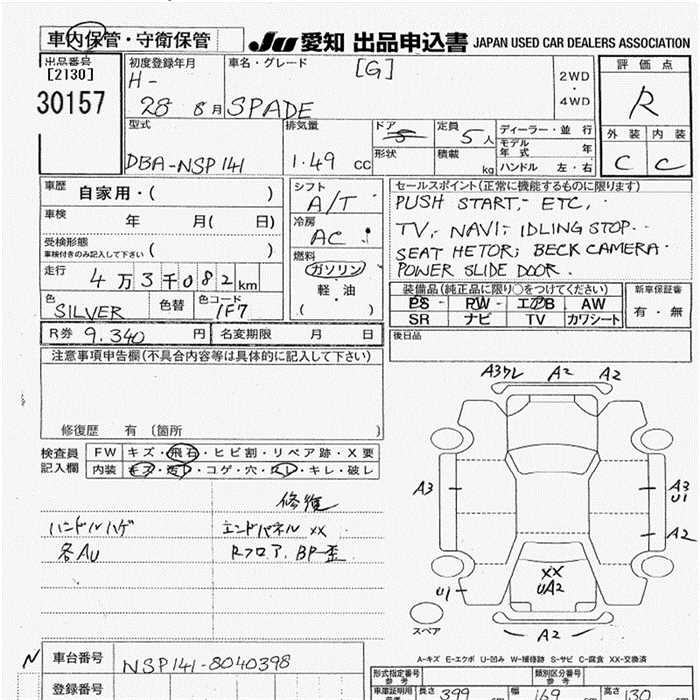 車内保管・守衛保管
Ju 愛知 出品申込書 JAPAN USED CAR DEALERS ASSOCIATION
出品番号
[2130]
30157
初度登録年月
H-
28 8月
車名・グレード
[G]
SPADE
2WD
・
4WD
評価点
R
外装 内装
C C
型式
DBA-NSP141
排気量
1.49 cc
ドア
5
形状
定員
5人
積載
kg
ディーラー・並行
モデル年式 年
ハンドル 左・右
車歴
自家用・( )
車検
年 月( 日)
受検形態
車検付きのみ記入して下さい ( )
走行
4万3千082km
色
SILVER
色替
色コード
1F7
R券 9.340 円
名変期限 月 日
シフト
A/T
冷房
AC
燃料
ガソリン
・
軽・油
( )
セールスポイント(正常に機能するものに限ります)
PUSH START,- ETC,
TV,- NAVI,- IDLING STOP..
SEAT HETOR, BECK CAMERA.
POWER SLIDE DOOR.
装備品(純正品に限り○をつけてください)
PS RW エアB AW
SR ナビ TV カワシート
新車保証書
有・無
後日品
注意事項申告欄(不具合内容等は具体的に記入して下さい)
修復歴 有 〔箇所
検査員
記入欄
FW キズ・飛石・ヒビ割・リペア跡・X要
内装 キズ・汚れ・コゲ・穴・スレ・キレ・破レ
修復
ハンドルハゲ エンドパネル xx
各AU Rフロア、BP-歪
A3ワレ A2 A2
A3
A3
U1
A2
XX
UA2
U1
A2
スペア
A-キズ E-エクボ U-凹み W-補修跡 S-サビ C-腐食 XX-交換済
車台番号 NSP141-8040398
登録番号
型式指定番号
参考
類別区分番号
参考
車庫証明用
長さ 399 幅 169 高さ 130